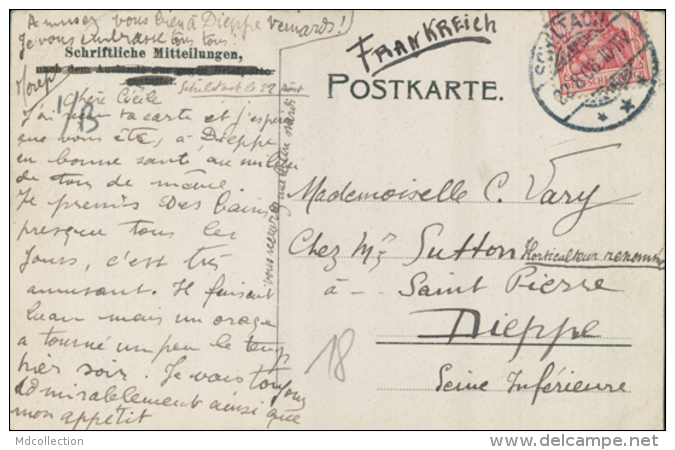 Amusez vous bien à Dieppe veinards!
Je vous embrasse tous tous!
Schriftliche Mitteilungen,
nach dem Auslande nur gegen Briefporto
gestattet.
Schiltach le 22 Août
Chère Cécile
J'ai ta carte et j'espère
que vous êtes, à Dieppe
en bonne santé, au milieu
de
Je prends des bains
presque tous les
jours, c'est très
amusant. Il faisait
beau mais un orage
a tourné un peu le temps
hier soir. Je vais toujours
admirablement ainsi que
mon appétit
FRANKREICH
POSTKARTE.
SCHILTACH
Mademoiselle C. Vary
Chez Mr Sutton Horticulteur renommé
à - Saint Pierre
Dieppe
Seine Inférieure
18
Mdcollection
delcampe.net